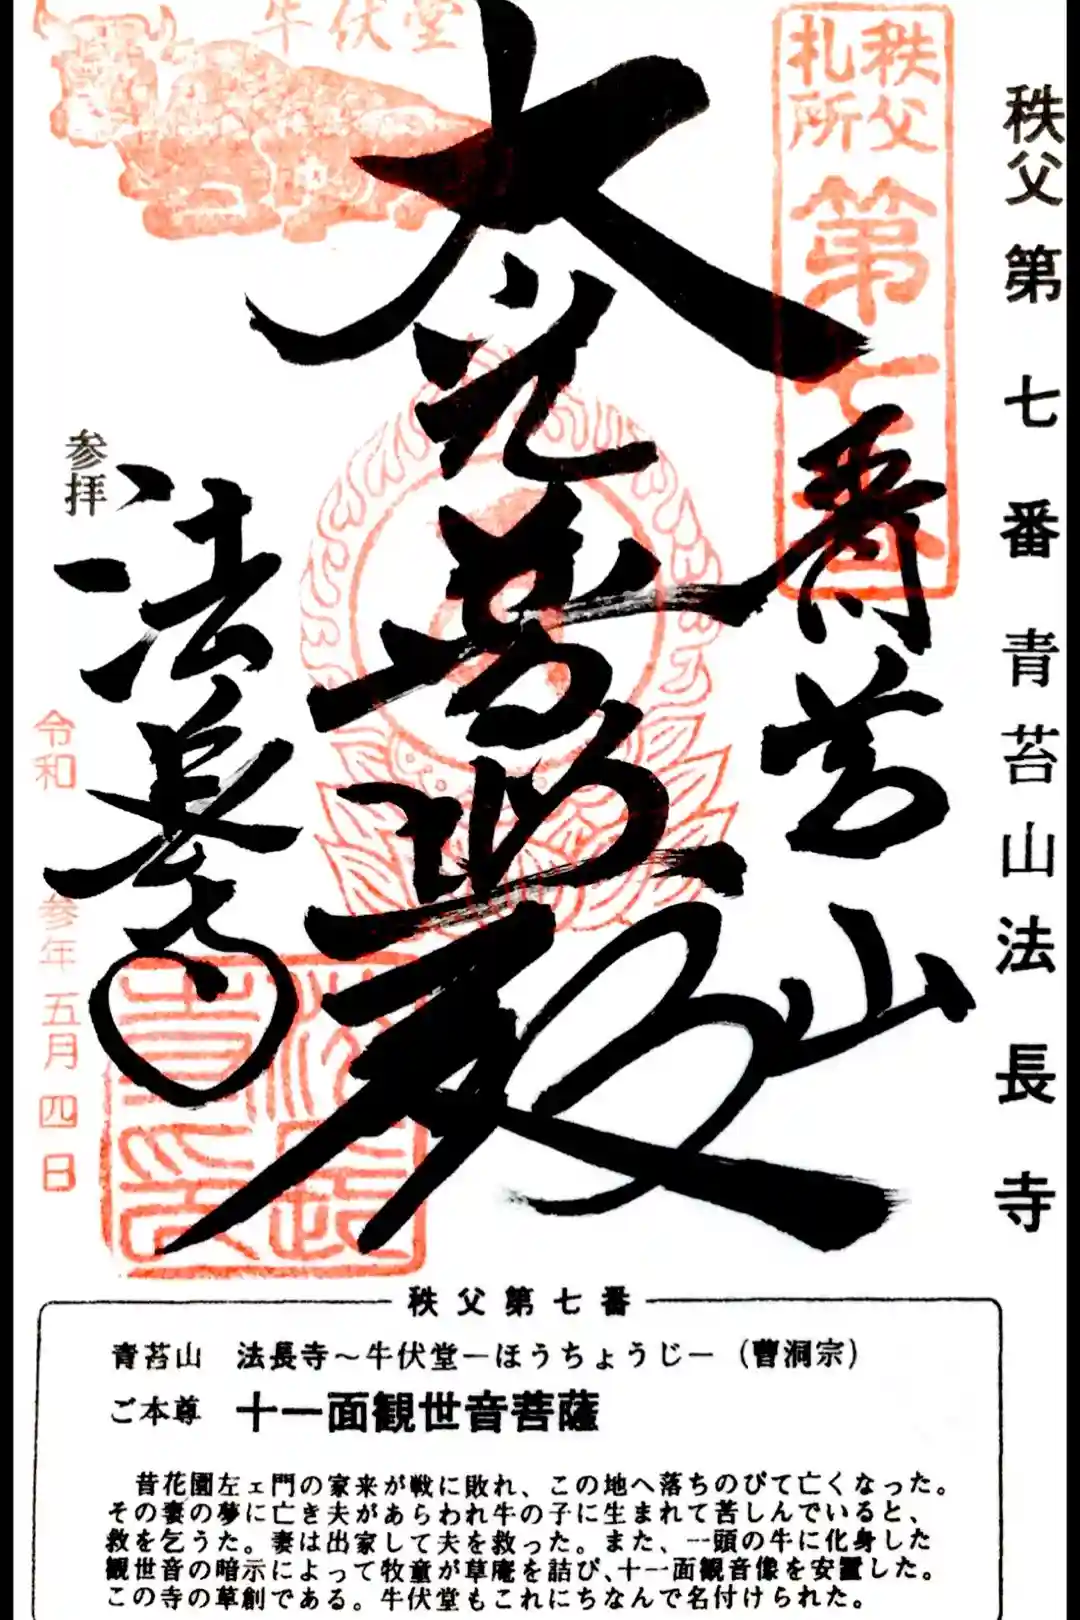 秩父第七番青苔山法長寺
秩父
札所
第七番
青苔山
大光普照殿
牛伏堂
参拝
法長寺
令和 参年 五月 四日
秩父第七番
青苔山 法長寺~牛伏堂ーほうちょうじー(曹洞宗)
ご本尊 十一面観世音菩薩
昔花園左ェ門の家来が戦に敗れ、この地へ落ちのびて亡くなった。
その妻の夢に亡き夫があらわれ牛の子に生まれて苦しんでいると、
救を乞うた。妻は出家して夫を救った。また、一頭の牛に化身した
観世音の暗示によって牧童が草庵を詰び、十一面観音像を安置した。
この寺の草創である。牛伏堂もこれにちなんで名付けられた。